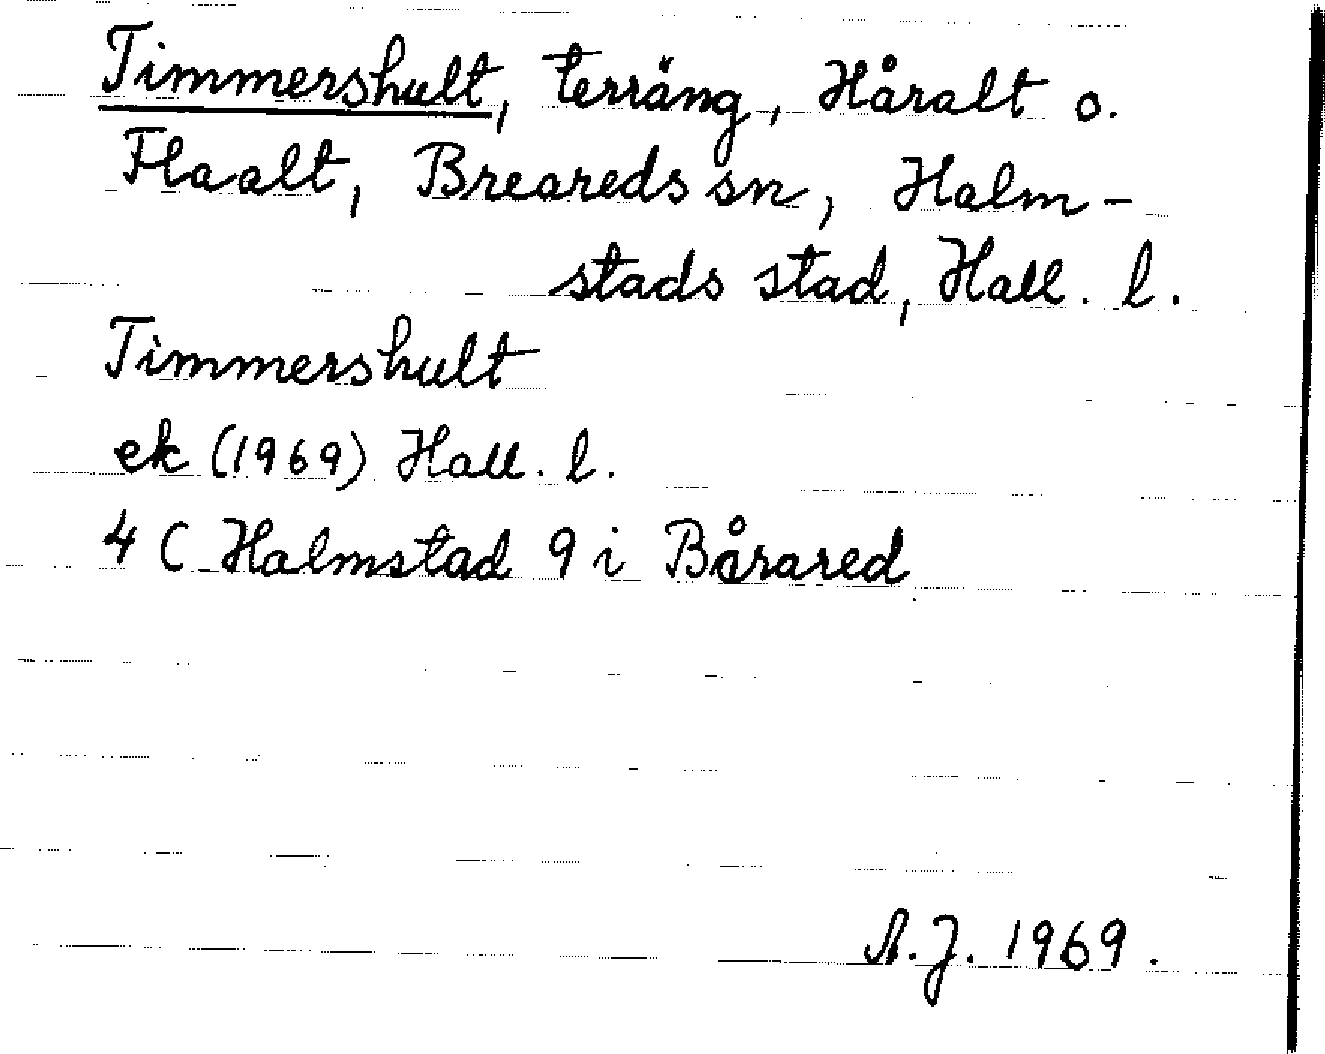 Timmershult, terräng, Håralt o.
Flaalt, Breareds sn, Halm-
stads stad, Hall. l.
Timmershult
ek (1969) Hall. l.
4 C Halmstad 9 i Bårared
A.J. 1969.